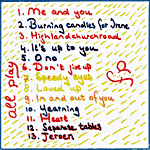 1. Me and you
2. Burning candles for Irene
3. Highlandchurchroad
4. It's up to you
5. O no
6. Don't give up
7. Speedy eyes
8. Loved up
9. In and out of you
10. Yearning
11. Heart
12. Separate tables
13. Jeroen
all play